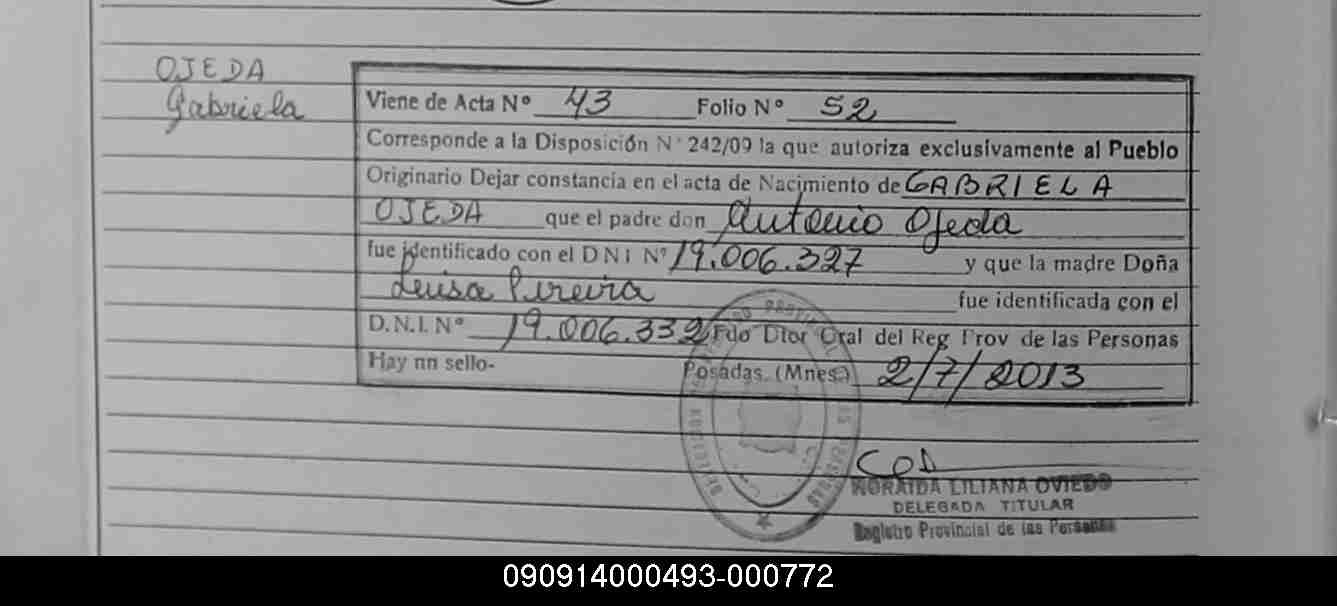 OJEDA
Gabriela
Viene de Acta Nº 43 Folio Nº 52
Corresponde a la Disposición N° 242/09 la que autoriza exclusivamente al Pueblo
Originario Dejar constancia en el acta de Nacimiento de GABRIELA
OJEDA que el padre don Antonio Ojeda
fue identificado con el D N I Nº 19.006.327 y que la madre Doña
Luisa Pireira fue identificada con el
D.N.I. Nº 19.006.332 Fdo Dtor Gral del Reg Prov de las Personas
Hay nn sello- Posadas. (Mnes.) 2/7/2013
NORAIDA LILIANA OVIEDO
DELEGADA TITULAR
Registro Provincial de las Personas
090914000493-000772